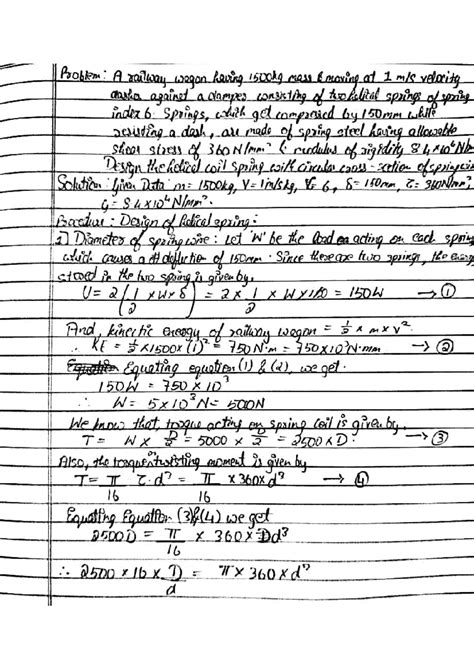 Problem: A railway wagon having 1500kg mass & moving at 1 m/s velocity
dashes against a damper consisting of two helical springs of spring
index 6. Springs, which get compressed by 150mm while
resisting a dash, are made of spring steel having allowable
shear stress of 360 N/mm² & modulus of rigidity 8.4×10⁴ N/m
Design the helical coil spring with circular cross-section of spring wir
Solution: Given Data: m= 1500kg, V= 1m/s, δ= 150mm, τ= 360N/mm²
G= 8.4×10⁴ N/mm².
Procedure: Design of helical spring:
1) Diameter of spring wire: Let 'W' be the load acting on each spring
which causes a deflection of 150mm. Since there are two springs, the energy
stored in the two spring is given by,
U= 2(1/2 × W × δ) = 2 × 1/2 × W × 150 = 150W → ①
And, kinetic energy of railway wagon = 1/2 × m × V²
∴ KE = 1/2 × 1500 × (1)² = 750 N·m = 750×10³ N·mm → ②
Equating equation (1) & (2), we get.
150W = 750 × 10³
∴ W= 5×10³ N = 5000N
We know that, torque acting on spring coil is given by,
T= W × D/2 = 5000 × D/2 = 2500 × D. → ③
Also, the torque twisting moment is given by
T= π/16 τ·d³ = π/16 × 360 × d³ → ④
Equating Equation (3)&(4) we get
2500D = π/16 × 360 × d³
∴ 2500 × 16 × D/d = π × 360 × d²